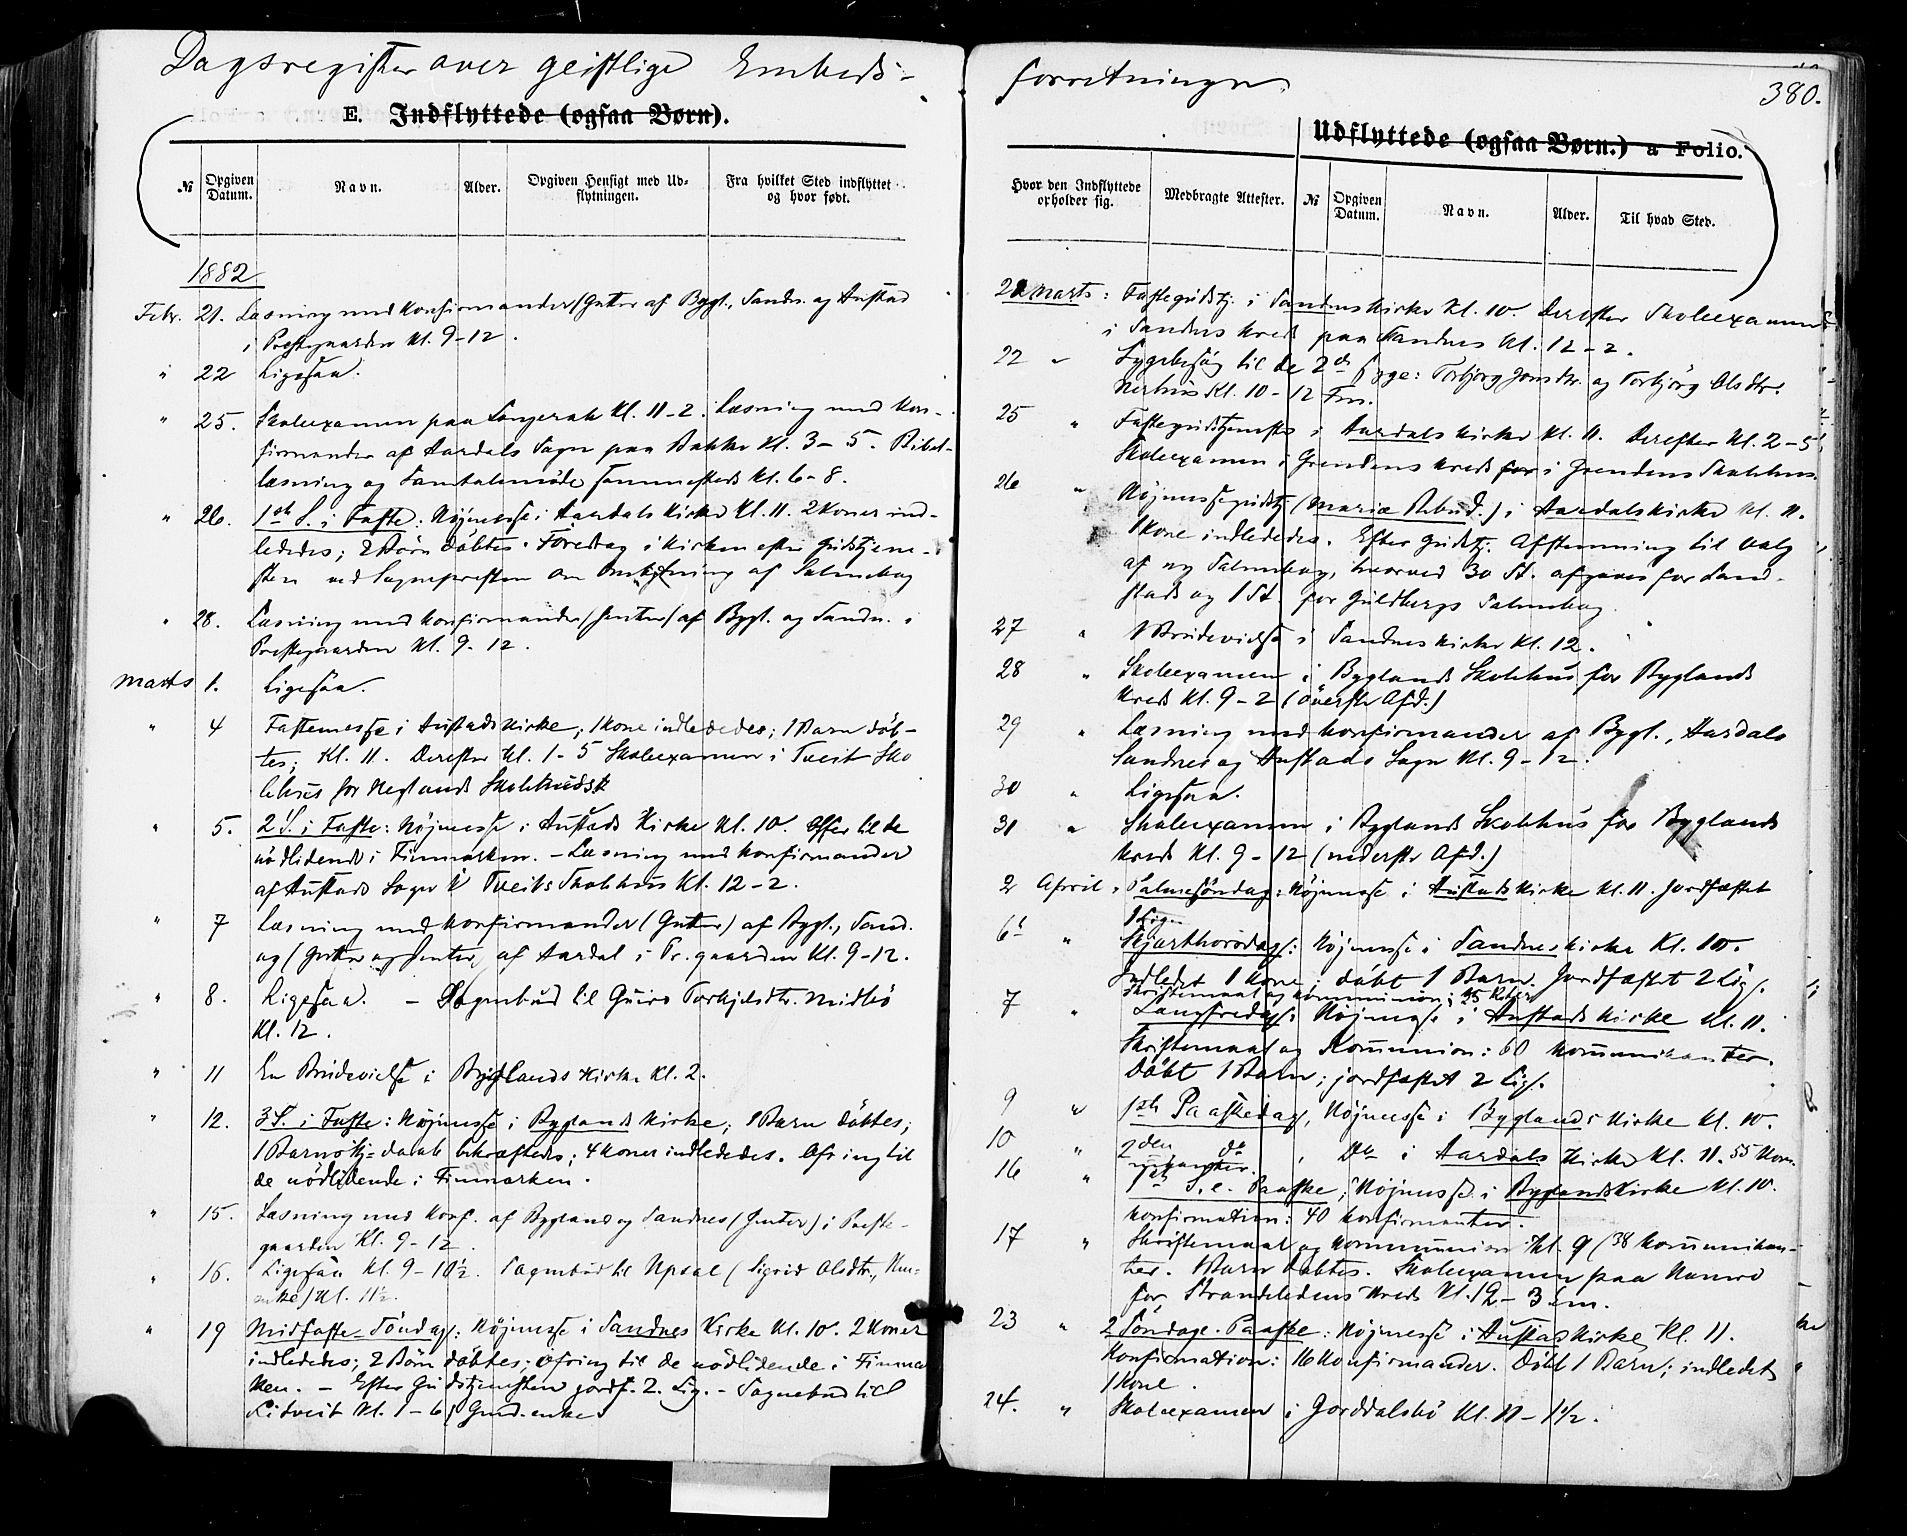 Dagsregister over geistlige Embeds-
forretninger.
380.
E. Indflyttede (ogsaa Børn).
Udflyttede (ogsaa Børn.) a Folio.
№ Opgiven Datum. Navn. Alder. Opgiven Hensigt med Udflytningen. Fra hvilket Sted indflyttet og hvor født.
Hvor den Indflyttede opholder sig. Medbragte Attester. № Opgiven Datum. Navn. Alder. Til hvad Sted.
1882
Febr. 21. Læsning med Konfirmander (Gutter af Bygl., Sandn. og Austad
i Præstegaarden Kl. 9-12.
" 22 Ligesaa.
" 25. Skoleexamen paa Langerak Kl. 11-2. Læsning med Kon-
firmander af Aardals Sogn paa Bakke Kl. 3-5. Bibel-
læsning og Samtalemöde sammesteds Kl. 6-8.
" 26. 1ste S. i Faste: Höjmesse i Aardals Kirke Kl. 11. 2 Koner ind-
lededes; 2 Börn döbtes. Foredrag i Kirken efter Gudstjene-
sten ved Sognepresten om af Salmebog
" 28. Læsning med Konfirmander (Jenter) af Bygl. og Sandn. i
Præstegaarden Kl. 9-12.
Marts 1. Ligesaa.
" 4 Fastemesse i Austads Kirke; 1 Kone indlededes; 1 Barn döb-
tes; Kl. 11. Derefter Kl. 1-5 Skoleexamen i Tveit Sko
lehus for Neglands
" 5. 2 S. i Faste: Höjmesse i Austads Kirke Kl. 10. Offer til de
nödlidende i Finmarken. - Læsning med Konfirmander
af Austads Sogn i Tveits Skolehus Kl. 12-2.
" 7 Læsning med Konfirmander (Gutter) af Bygl., Sand.
og (Gutter og Jenter) af Aardal i Pr.gaarden Kl. 9-12.
" 8. Ligesaa. - Sognebud til Guro Torkjelsdtr. Midbö
Kl. 12.
" 11 En Brudevielse i Byglands Kirke Kl. 2.
" 12. 3 S. i Faste: Höjmesse i Byglands Kirke; 1 Barn döbtes;
1 Barns Hj=daab bekræftedes; 4 Koner indlededes. Ofring til
de nödlidende i Finmarken.
" 15. Læsning med Konf. af Bygland og Sandnes (Jenter) i Præste-
gaarden Kl. 9-12.
" 16. Ligesaa Kl. 9-10½. Sognebud til Upsal (Sigrid Olsdtr.,
Kl. 11½.
" 19 Midfaste-Söndag: Höjmesse i Sandnes Kirke Kl. 10. 2 Koner
indlededes; 2 Börn döbtes; Ofring til de nödlidende i Finmar
ken. - Efter Gudstjenesten jordf. 2 Lig. - Sognebud til
Litveit Kl. 1-6
Marts: Fastegudstj. i Sandnes Kirke Kl. 10. Derefter Skoleexamen
i Sandnes Kreds paa Sandnes Kl. 12-2.
22 " Sygebesög til de 2de syge: Torbjörg Jonsdtr. og Torbjörg Olsdtr.
Kl. 10-12 Fm.
25 " Fastegudstjeneste i Aardals Kirke Kl. 11. Derefter Kl. 2-5
Skoleexamen i Grendens Kreds i Grendens Skolehus.
26 " Höjmessegudstj. (Mariæ Bebud.) i Aardals Kirke Kl. 11.
1 Kone indlededes. Efter Gudstj. Afstemning til Valg
af ny Salmebog, hvorved 30 St. afgaves for Land-
stads og 1 St. for Guldbergs Salmebog.
27 " 1 Brudevielse i Sandnes Kirke Kl. 12.
28 " Skoleexamen i Byglands Skolehus for Byglands
Kreds Kl. 9-2 (överste Afd.)
29 " Læsning med Konfirmander af Bygl., Aardals
Sandnes og Austads Sogn Kl. 9-12.
30 " Ligesaa.
31 " Skoleexamen i Byglands Skolehus for Byglands
Kreds Kl. 9-12 (nederste Afd.)
2 April: Palmesöndag: Höjmesse i Austads Kirke Kl. 11. Jordfæstet
1 Lig.
6 " Skjærthorsdag: Höjmesse i Sandnes Kirke Kl. 10.
Indledet 1 Kone; döbt 1 Barn. Jordfæstet 2 Lig.
Skriftemaal og Kommunion: 25
7 " Langfredag: Höjmesse i Austads Kirke Kl. 11.
Skriftemaal og Kommunion: 60 Kommunikanter.
Döbt 1 Barn; jordfæstet 2 Lig.
9 " 1ste Paaskedag, Höjmesse i Byglands Kirke Kl. 10.
10 " 2den do, Do i Aardals Kirke Kl. 11. 55 Kom.
munikanter.
16 " 1ste S. e. Paaske, Höjmesse i Byglands Kirke Kl. 10.
Konfirmation: 40 Konfirmanter.
17 " Skriftemaal og Kommunion Kl. 9 (38 Kommunikan-
ter. 1 Barn döbtes. Skoleexamen paa
for Strandeledens Kreds Kl. 12-3 Em.
23 " 2 Söndag e. Paaske: Höjmesse i Austad Kirke Kl. 11.
Konfirmation: 16 Konfirmander. Döbt 1 Barn; indledet
1 Kone.
24. " Skoleexamen i Jorddalsbö Kl. 11-1½.